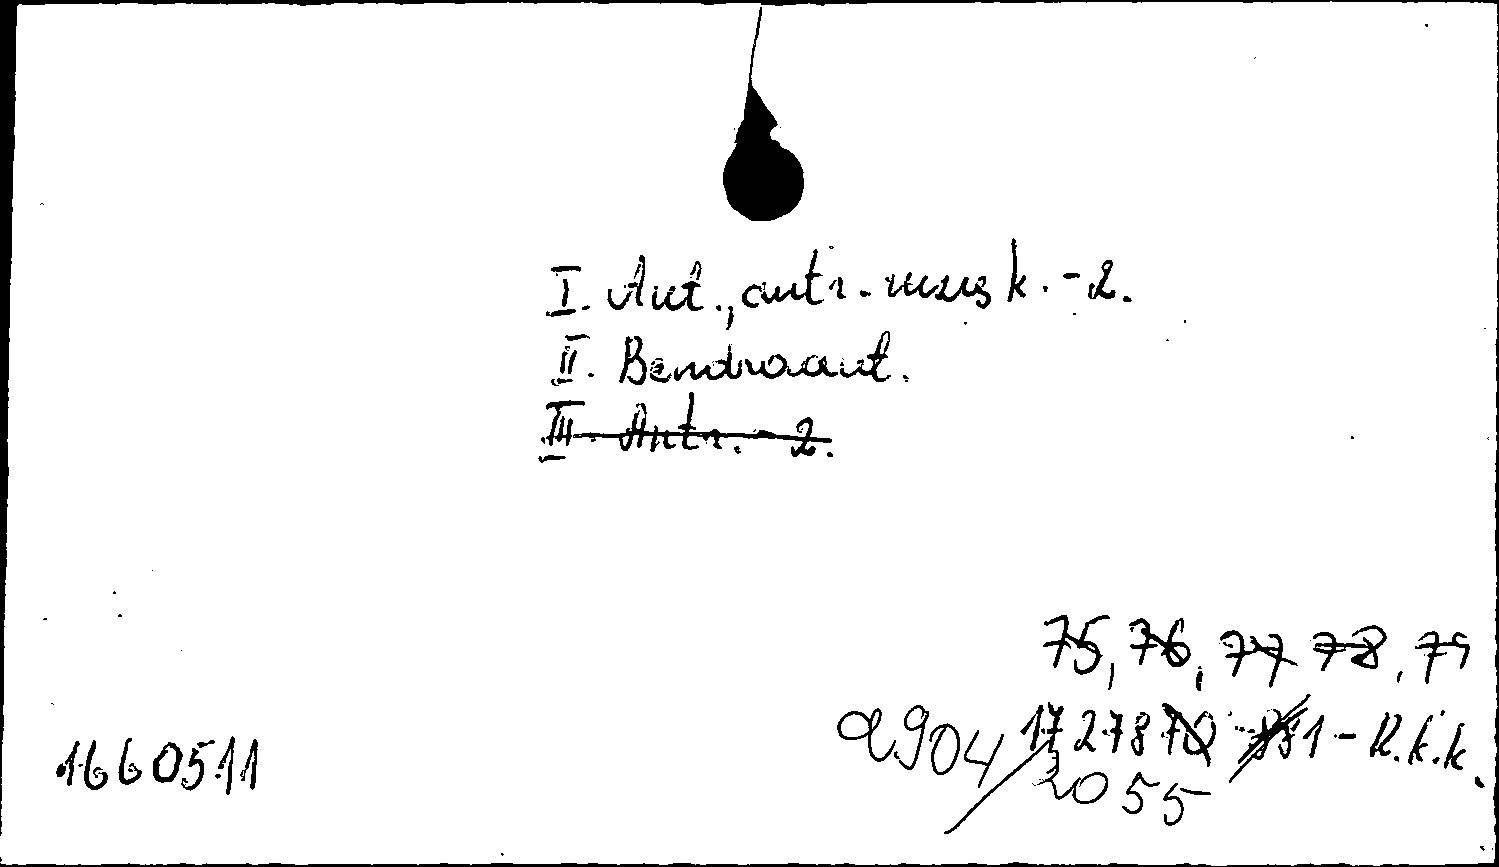 I. Aut., antr. užsak. - 2.
II. Bendraaut.
III. Antr. - 2.
75, 76, 77 78, 79
2904 / 2055
1660511